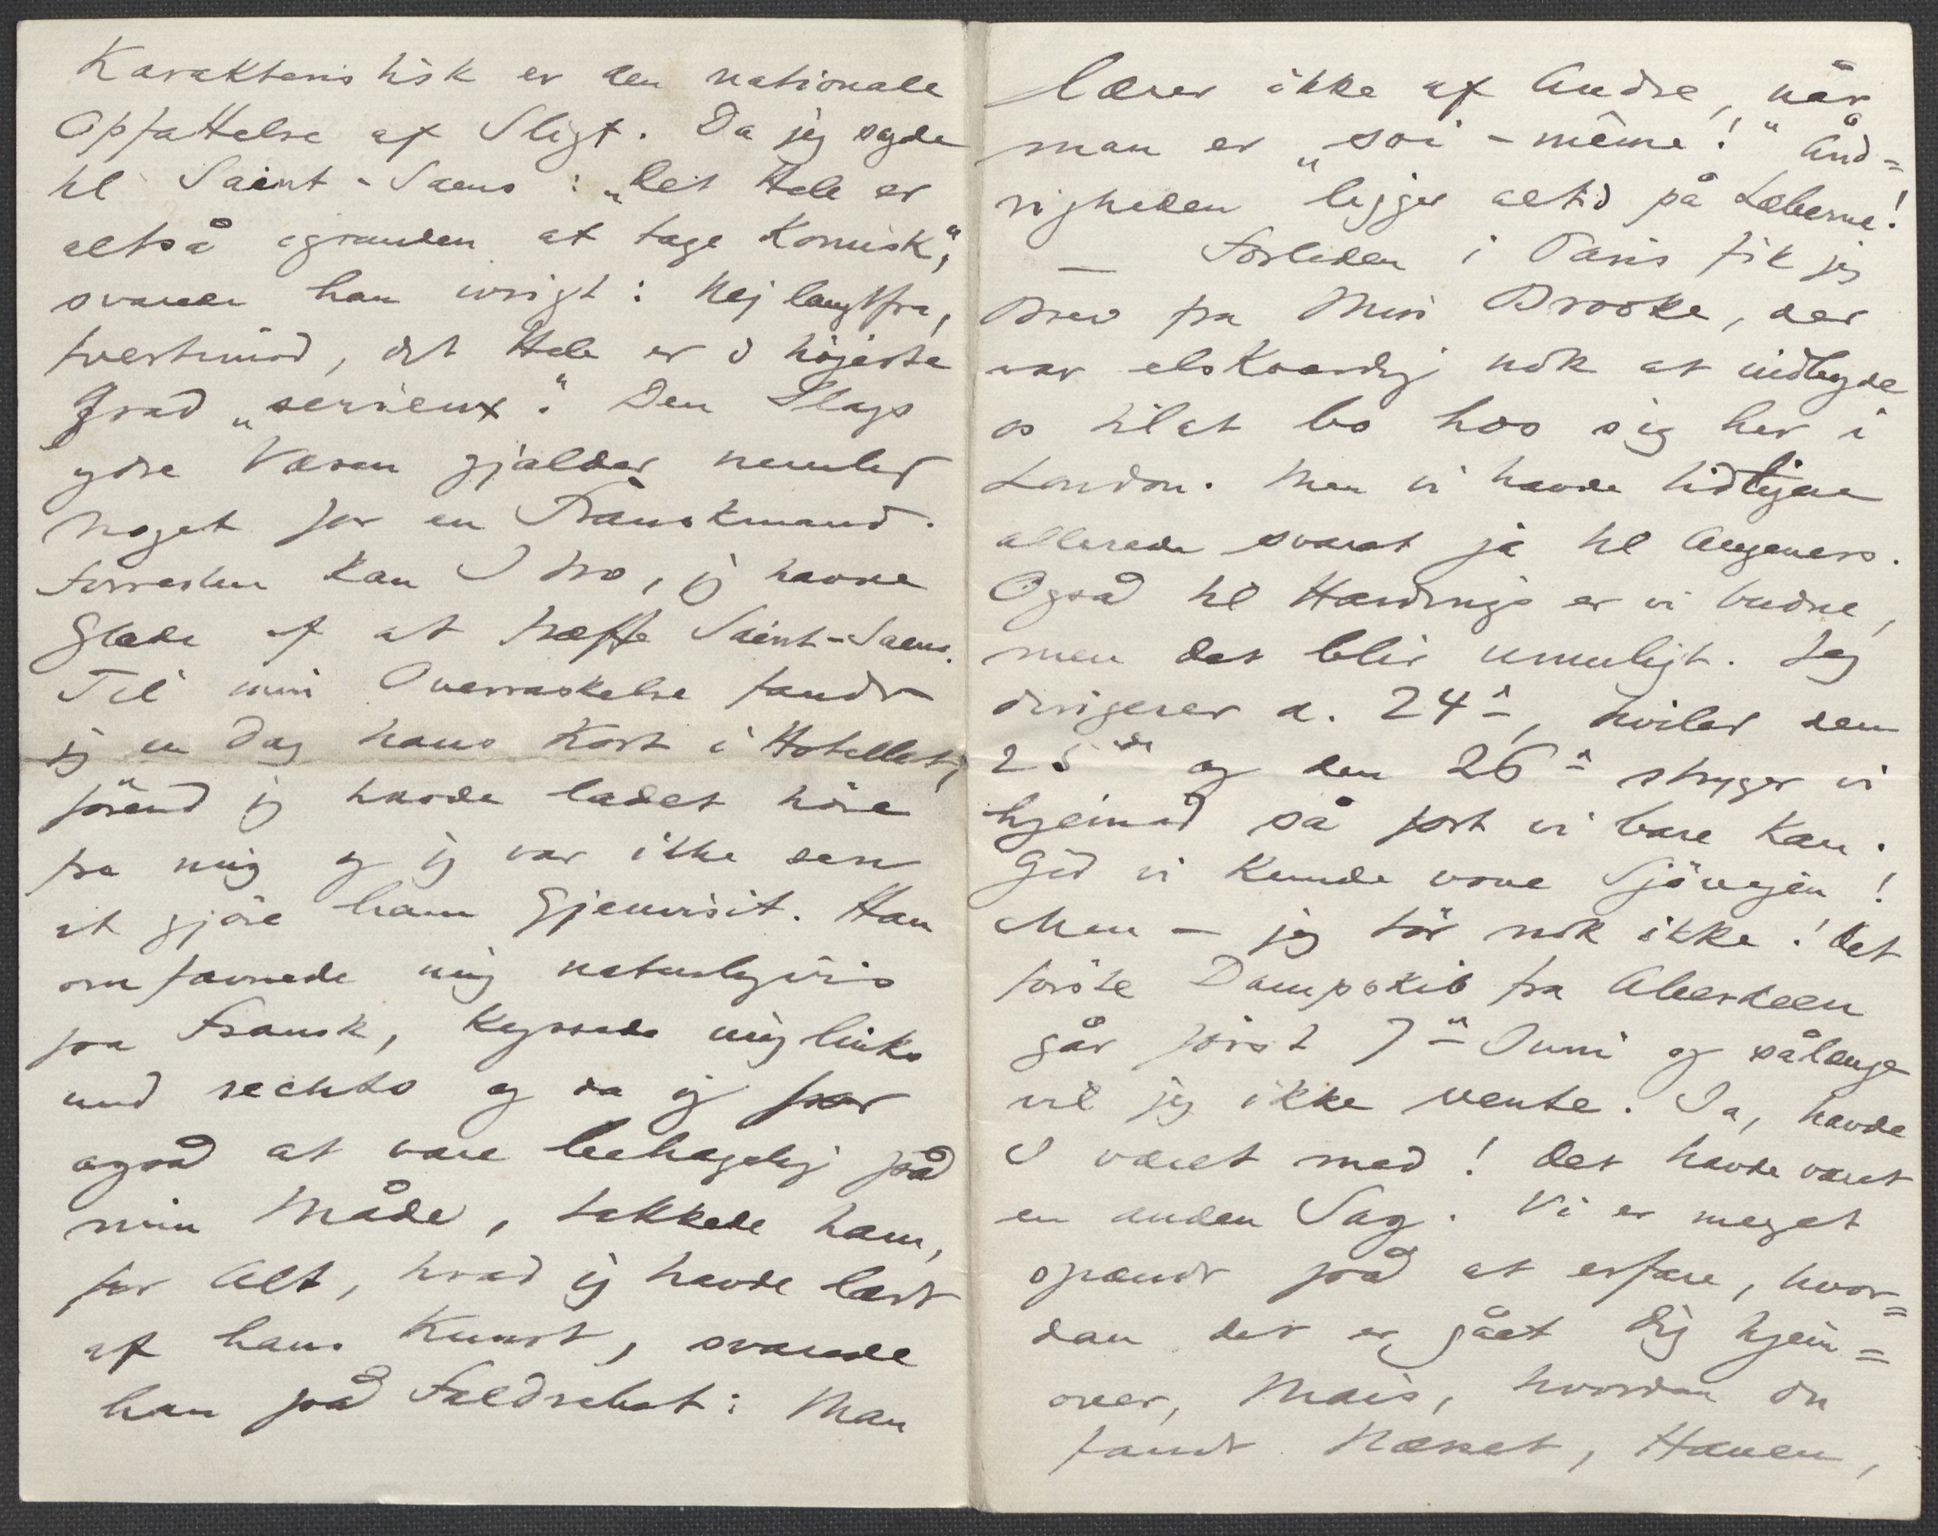 Karakteristisk er den nationale
Opfattelse af Sligt. Da jeg sagde
til Saint-Saens: „Det Hele er
altså igrunden at tage Komisk",
svarede han ivrigt: Nej langtfra,
tvertimod, det Hele er i höjeste
Grad „serieux". Den Slags
ydre Væsen gjælder nemlig
Noget for en Franskmand.
Forresten kan I tro, jeg havde
Glæde af at træffe Saint-Saens.
Til min Overraskelse fandt
jeg en Dag hans Kort i Hotellet,
förend jeg havde ladet höre
fra mig og jeg var ikke sen
at gjöre ham Gjenvisit. Han
omfavnede mig naturligvis
paa Fransk, kyssede mig links
und rechts og da jeg for
også at være behagelig på
min Måde, takkede ham,
for Alt, hvad jeg havde lært
af hans Kunst, svarede
han på Faldrebet: Man
lærer ikke af Andre, når
man er „soi-même!" Ånd=
righeden ligger altid på Læberne!
— Forleden i Paris fik jeg
Brev fra Miss Brooke, der
var elskværdig nok at indbyde
os til at bo hos sig her i
London. Men vi havde tidligere
allerede svaret ja til Augeners.
Også til Hardings er vi budne,
men det blir umuligt. Jeg
dirigerer d. 24de, hviler den
25de og den 26de stryger vi
hjemad så fort vi bare kan.
Gid vi kunde vove Sjövejen!
Men — jeg tör nok ikke! Det
förste Dampskib fra Aberdeen
går först 7de Juni og sålænge
vil jeg ikke vente. Ja, havde
I været med! Det havde været
en anden Sag. Vi er meget
spændt på at erfare, hvor=
dan det er gået Dig hjem=
over, Mais, hvordan du
fandt Næsset, Haven,